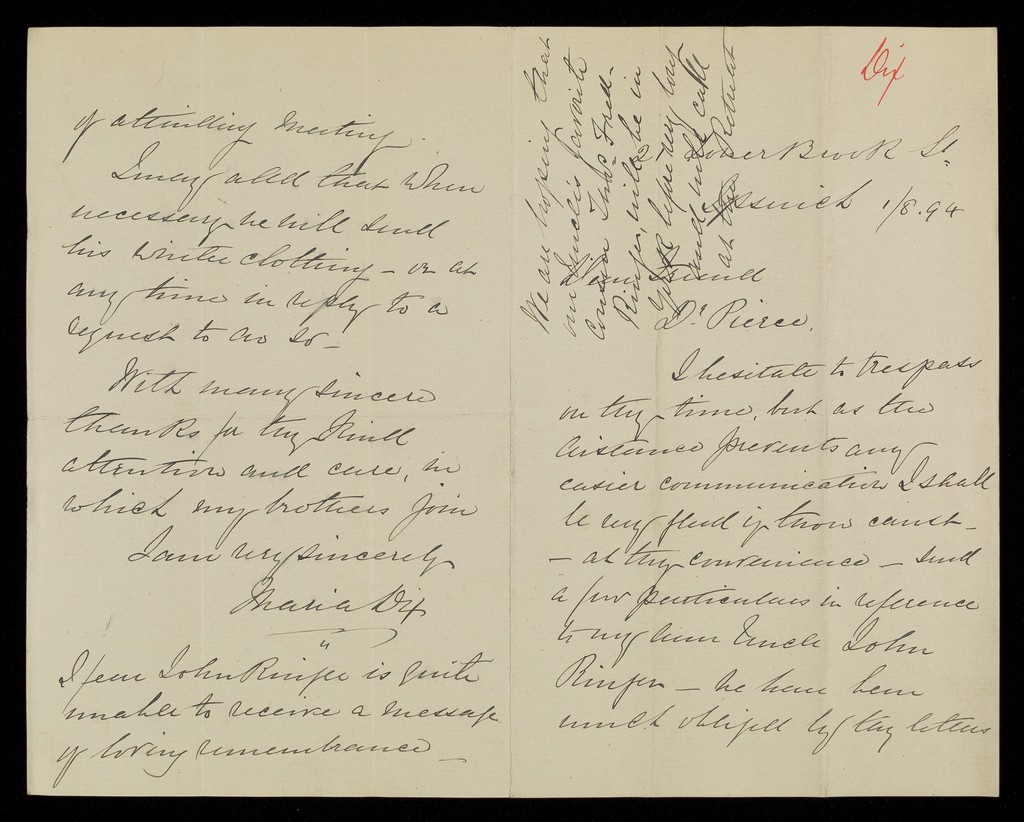 Dix
2 Lower Brook St.
Ipswich 1/8.94
Dear Friend
Dr. Pierce,
I hesitate to trespass
on thy time, but as the
distance prevents any
easier communication I shall
be very glad if thou canst -
- at thy convenience - send
a few particulars in reference
to my dear Uncle John
Ringer - we have been
much obliged by thy letters
We are hoping that
our Uncle's favorite
Cousin Thos Fred-
Ringer, will be in
York before very long
and will call
at the Retreat
of attending Meeting.
I may add that when
necessary we will send
his winter clothing - or at
any time in reply to a
request to do so -
With many sincere
thanks for thy kind
attention and care, in
which my brothers join
I am very sincerely
Maria Dix
"
I fear John Ringer is quite
unable to receive a message
of loving remembrance -